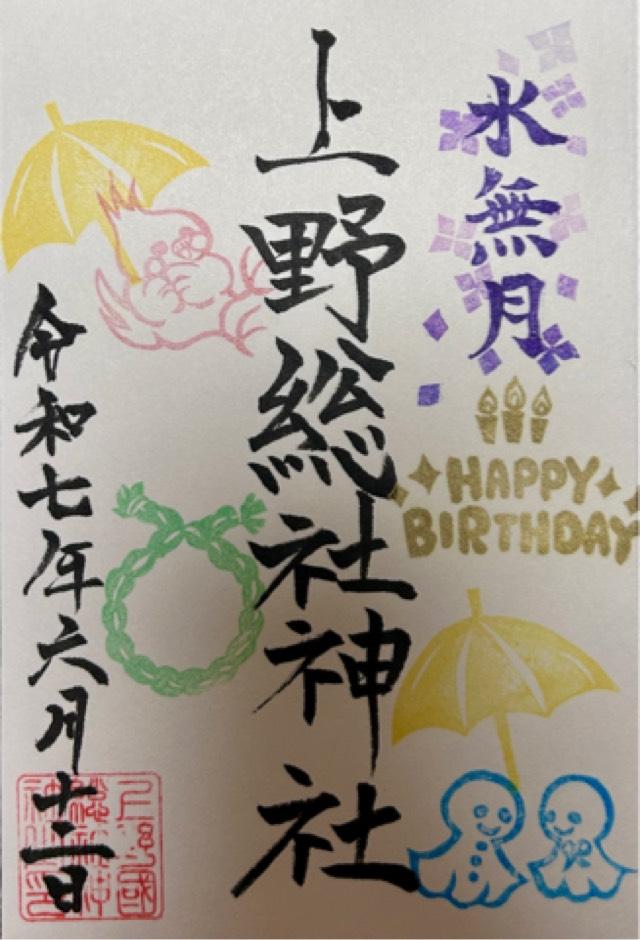 水無月
HAPPY
BIRTHDAY
上野総社神社
令和七年六月十二日